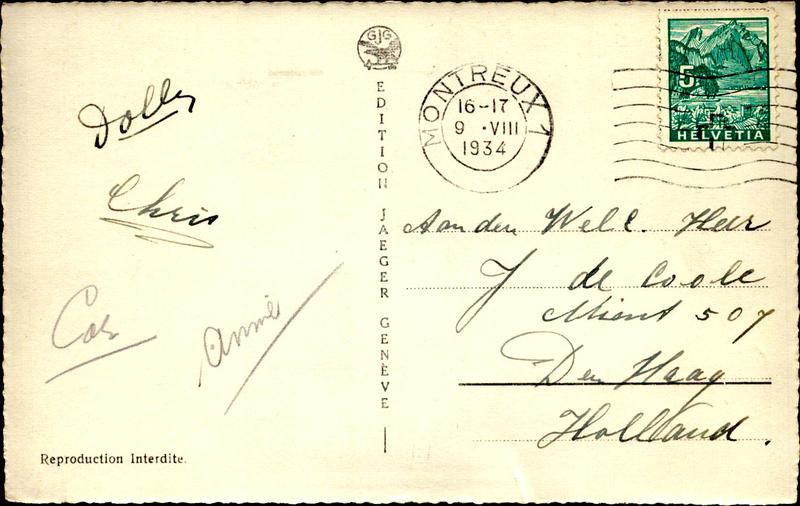 GJG
EDITION JAEGER GENÈVE
MONTREUX 1
16-17
9 .VIII
1934
5
HELVETIA
Dolly
Chris
Cor
Annie
Aan den Wel E. Heer
J de Coole
Mient 507
Den Haag
Holland.
Reproduction Interdite.